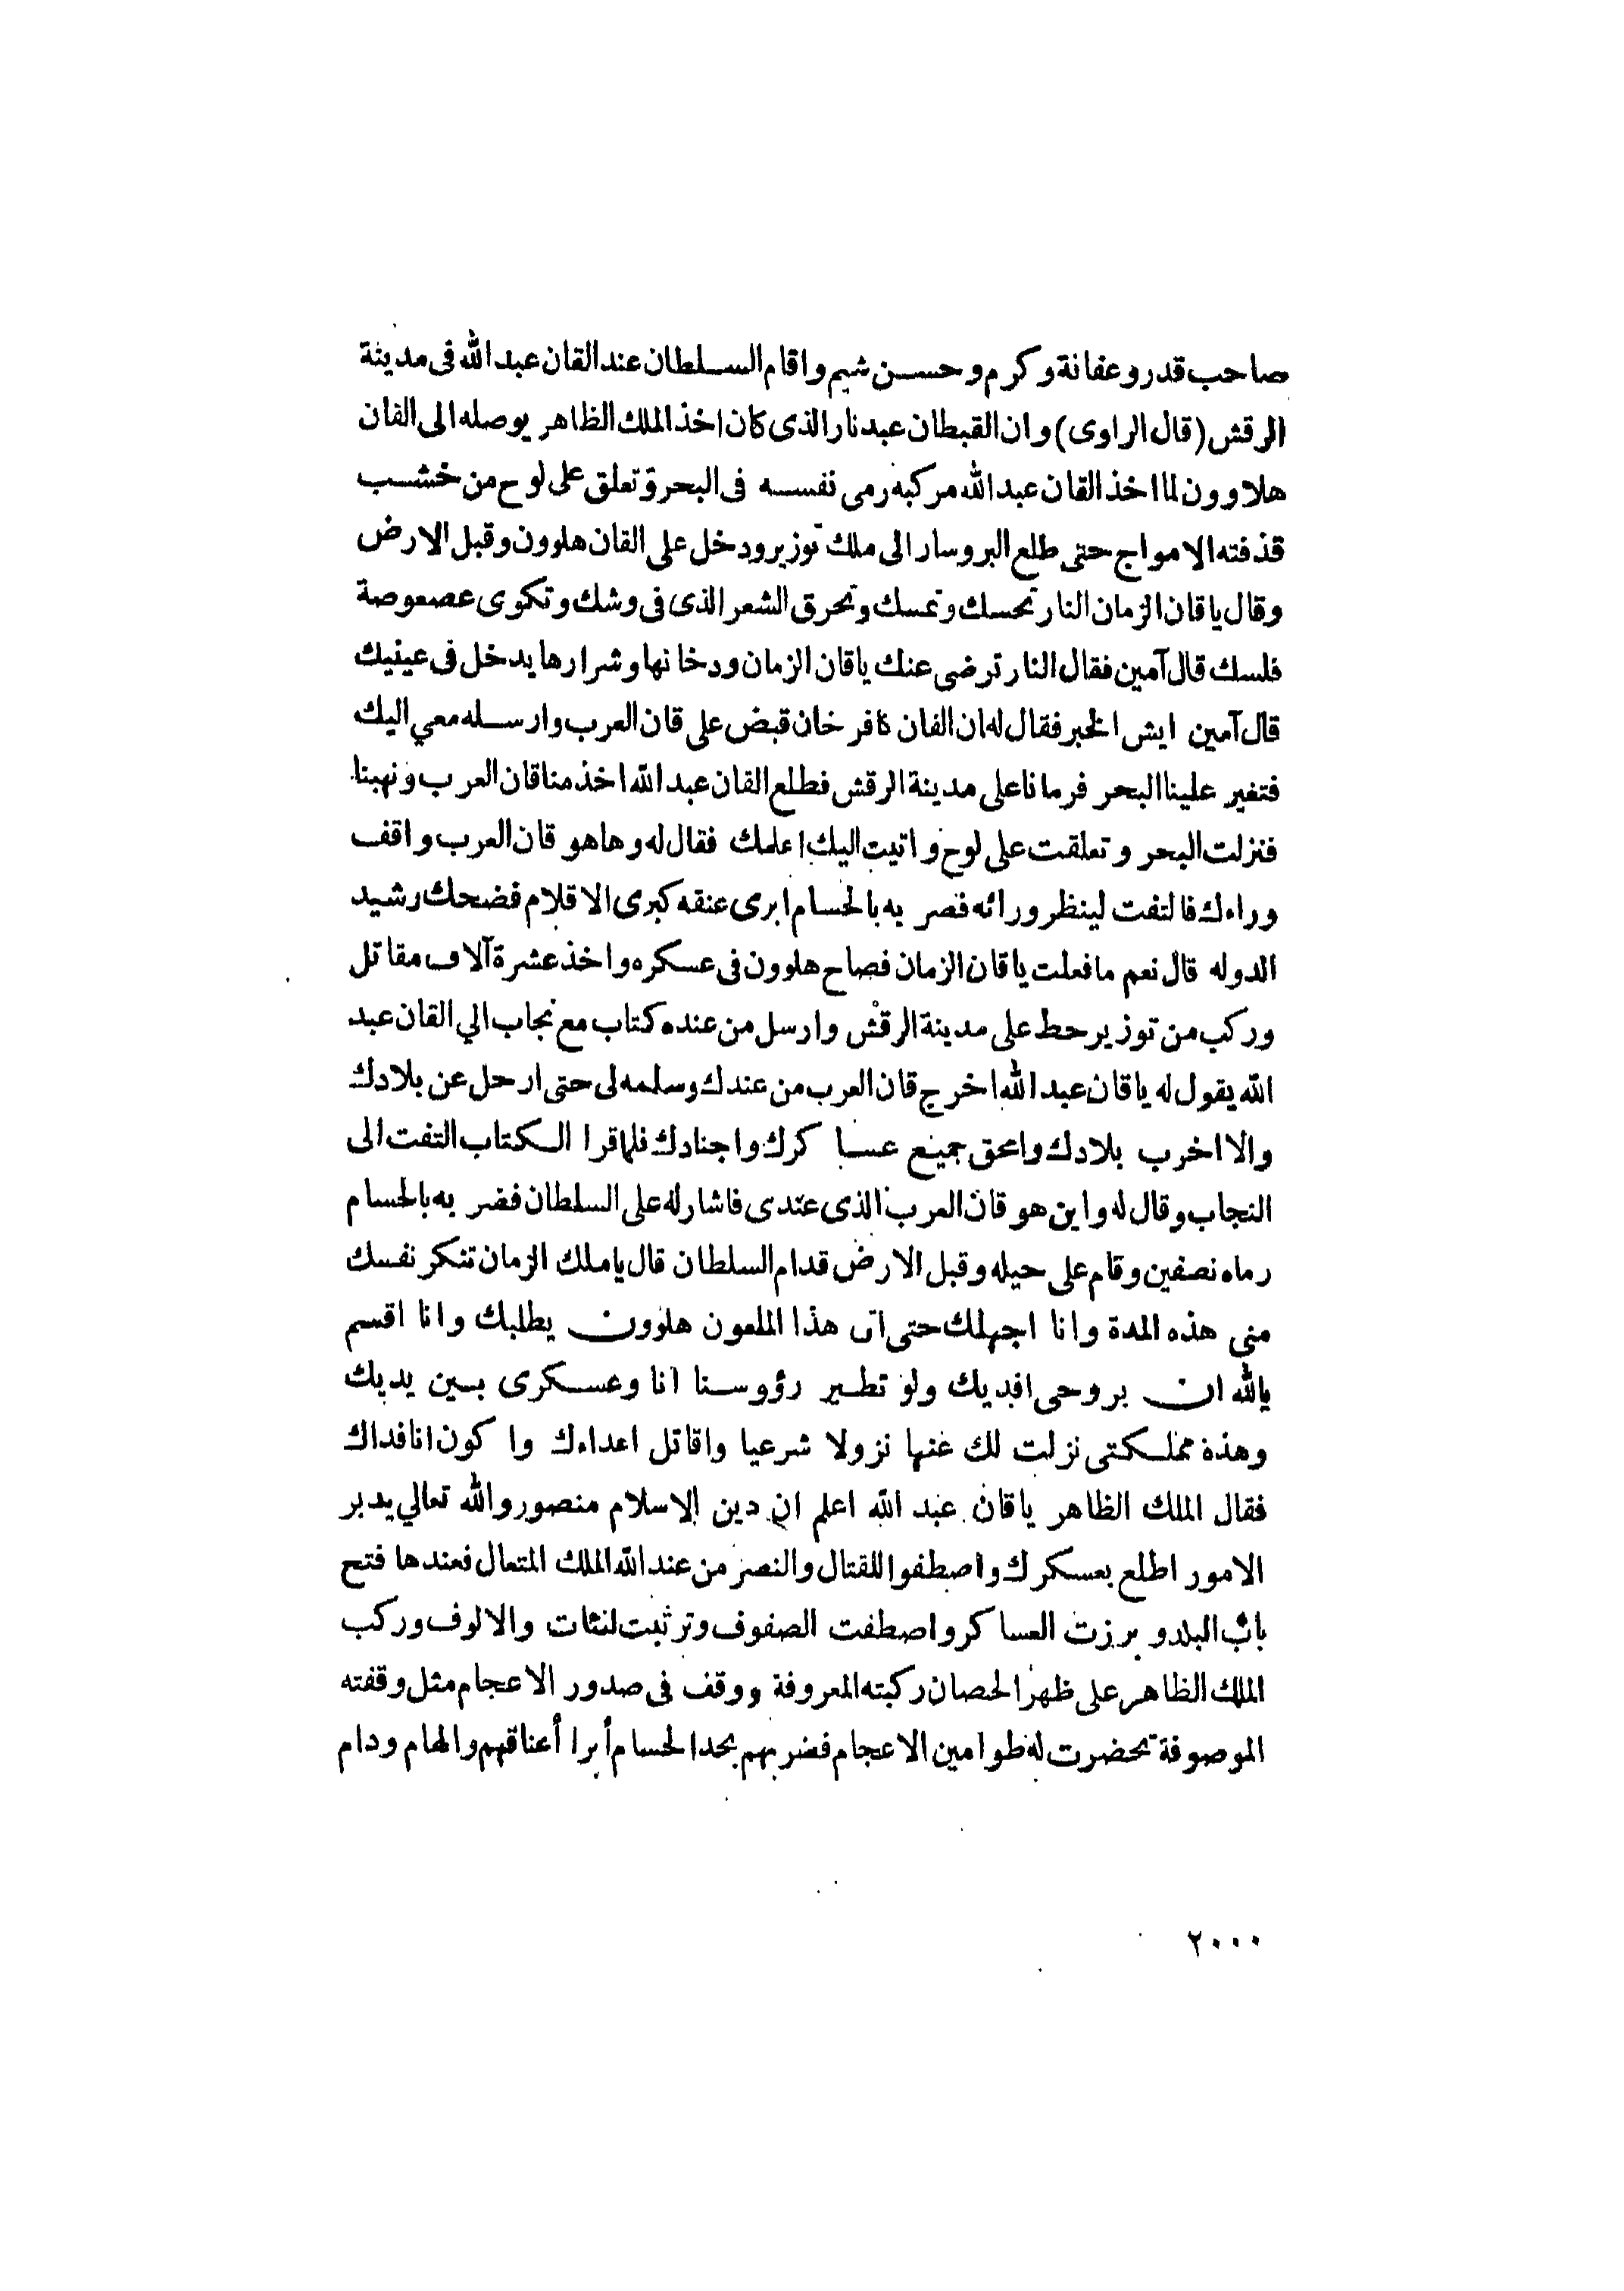 صاحب قدر وعفانة وكرم وحسن شيم واقام السلطان عند القان عبد الله فى مدينة
الرقش (قال الراوى) وان القبطان عبد نار الذى كان اخذ الملك الظاهر يوصله الى القان
هلاوون لما اخذ القان عبد الله مركبه رمى نفسه فى البحر وتعلق على لوح من خشب
قذفته الامواج حتى طلع البر وسار الى ملك توزير ودخل على القان هلوون وقبل الارض
وقال ياقان الزمان النار تحسك وتمسك وتحرق الشعر الذى فى وشك وتكوى عصعوصة
فلسك قال آمين فقال النار ترضى عنك ياقان الزمان ودخانها وشرارها يدخل فى عينيك
قال آمين ايش الخبر فقال له ان القان كافر خان قبض على قان العرب وارسله معي اليك
فتغير علينا البحر فرمانا على مدينة الرقش فطلع القان عبد الله اخذ منا قان العرب ونهبنا
فنزلت البحر وتعلقت على لوح واتيت اليك اعلمك فقال له وها هو قان العرب واقف
وراءك فالتفت لينظر ورائه فضر به بالحسام ابرى عنقه كبرى الاقلام فضحك رشيد
الدوله قال نعم ما فعلت ياقان الزمان فصاح هلوون فى عسكره واخذ عشرة آلاف مقاتل
وركب من توزير حط على مدينة الرقش وارسل من عنده كتاب مع نجاب الي القان عبد
الله يقول له ياقان عبد الله اخرج قان العرب من عندك وسلمه لى حتى ارحل عن بلادك
والا اخرب بلادك وامحق جميع عساكرك واجنادك فلما قرا الكتاب التفت الى
النجاب وقال له واين هو قان العرب الذى عندى فاشار له على السلطان فضر به بالحسام
رماه نصفين وقام على حيله وقبل الارض قدام السلطان قال ياملك الزمان تنكر نفسك
منى هذه المدة وانا اجهلك حتى اتى هذا الملعون هلوون يطلبك وانا اقسم
بالله ان بروحى افديك ولو تطير رؤوسنا انا وعسكرى بين يديك
وهذة مملكتى نزلت لك عنها نزولا شرعيا واقاتل اعداءك واكون انا فداك
فقال الملك الظاهر ياقان عبد الله اعلم ان دين الاسلام منصور والله تعالي يدبر
الامور اطلع بعسكرك واصطفوا للقتال والنصر من عند الله الملك المتعال فعندها فتح
باب البلد وبرزت العساكر واصطفت الصفوف وترتبت لنئات والالوف وركب
الملك الظاهر على ظهر الحصان ركبته المعروفة ووقف فى صدور الاعجام مثل وقفته
الموصوفة تحضرت له طوامين الاعجام فضربهم بحد الحسام أبرا أعناقهم والهام ودام
٢٠٠٠